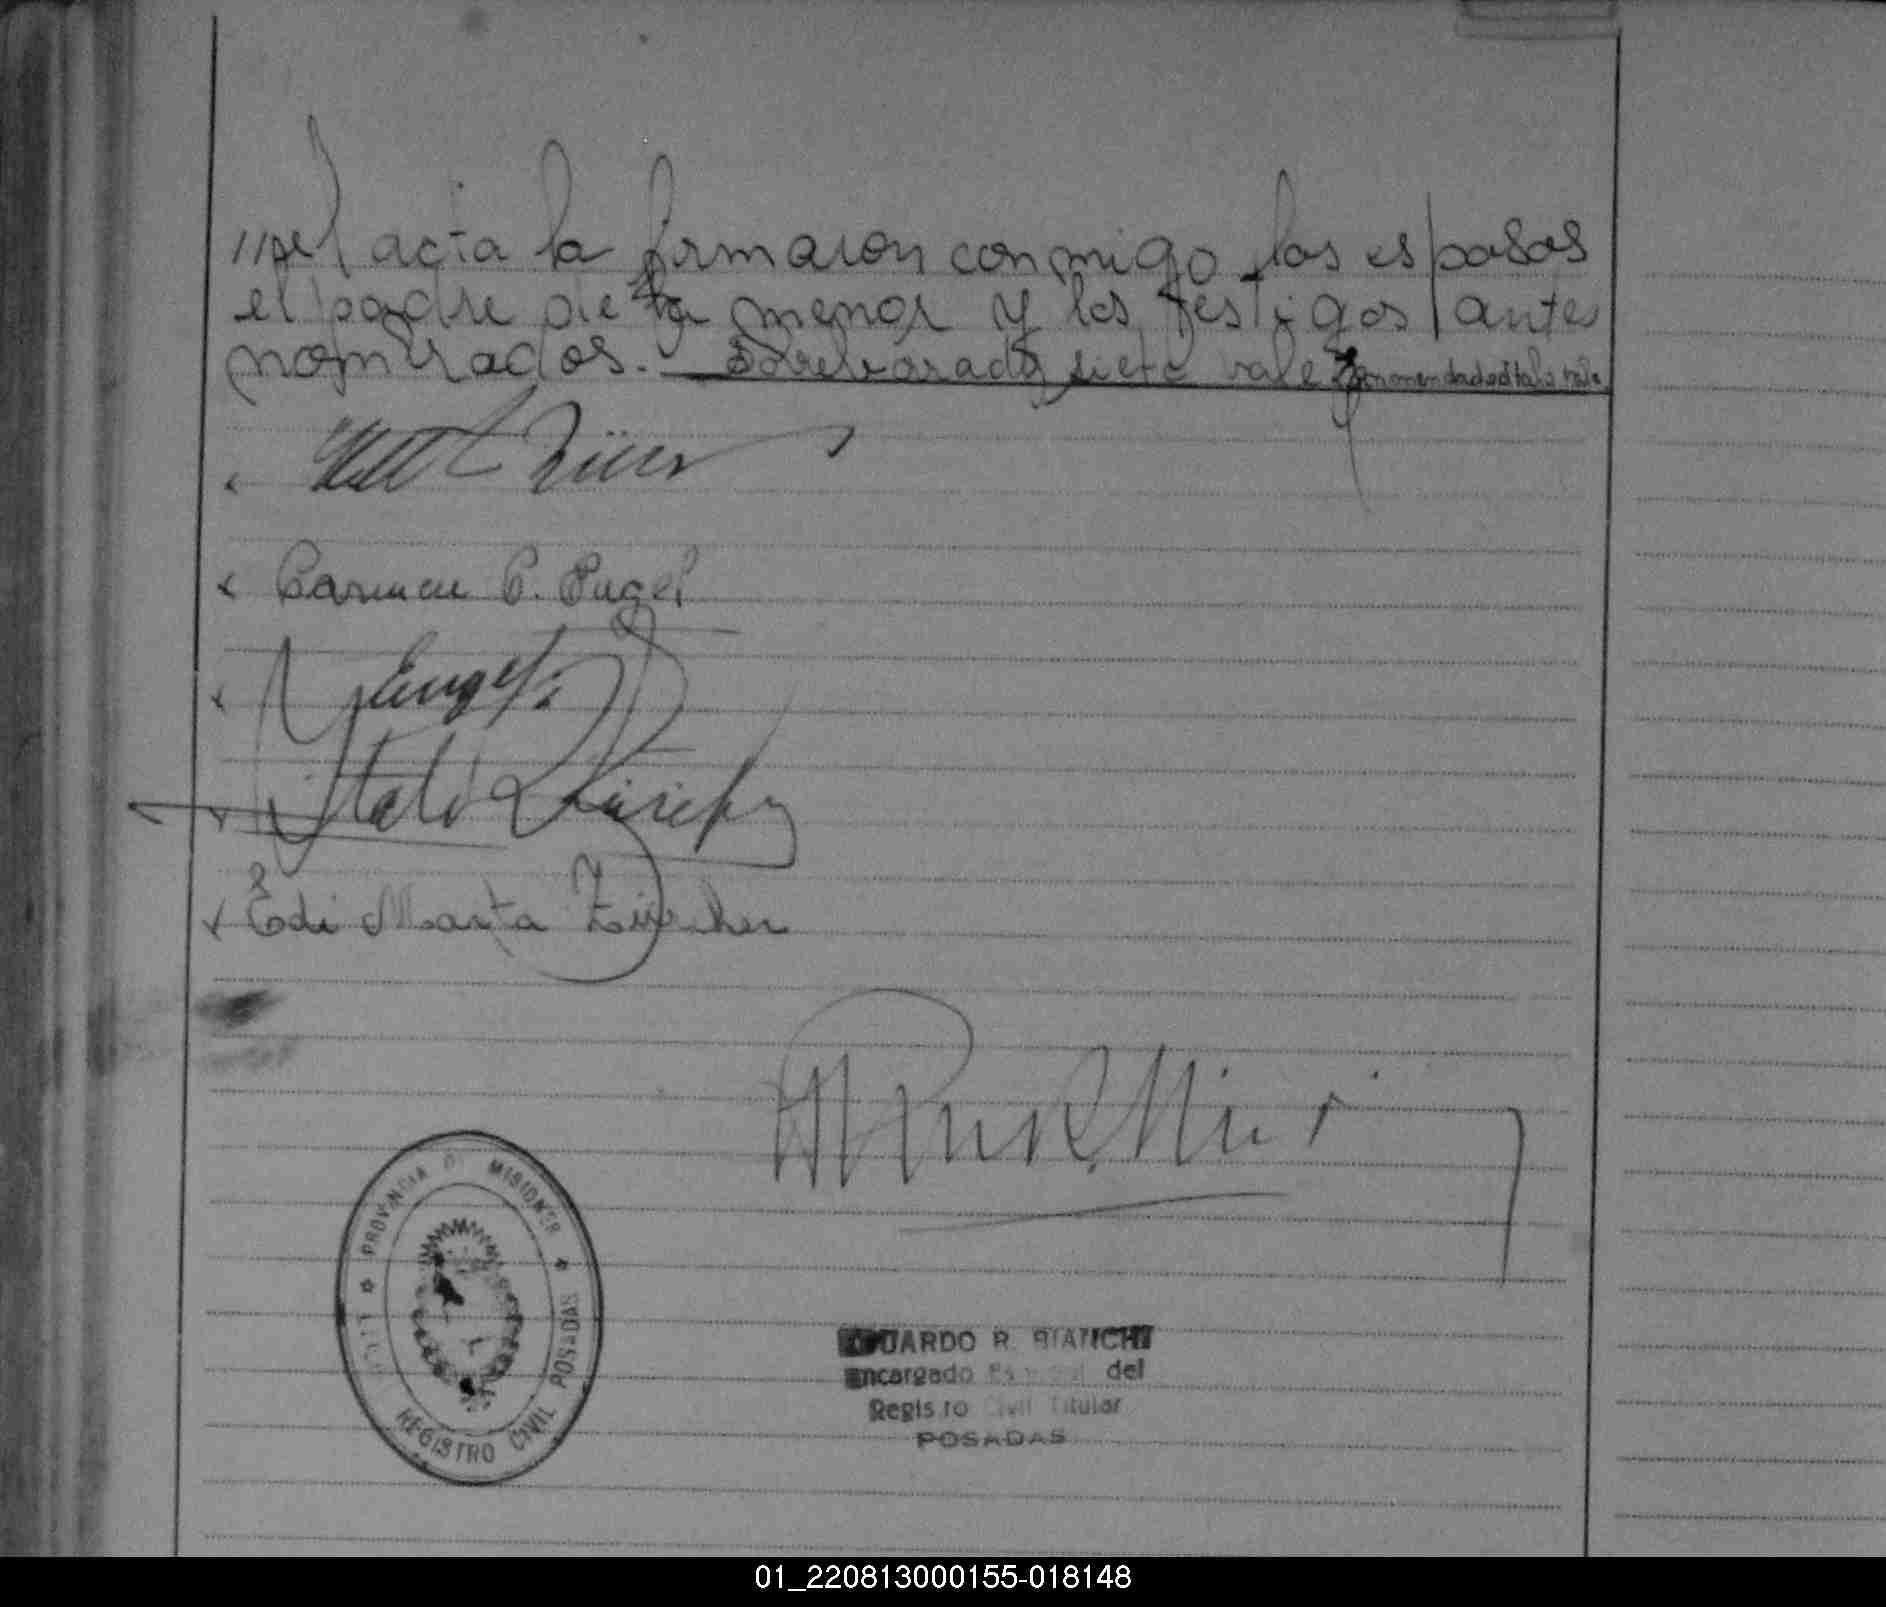 //el acta la firmaron conmigo, los esposos
el padre de la menor y los testigos ante
nombrados. Sobreborrado siete vale Enmendado Italo vale
Carmen P. Pugel
Engel
Italo Zürcher
Edi Marta Zürcher
PROVINCIA D MISIONES
REGISTRO CIVIL POSADAS
EDUARDO R. BIANCHI
Encargado del
Registro Civil Titular
POSADAS
01_220813000155-018148